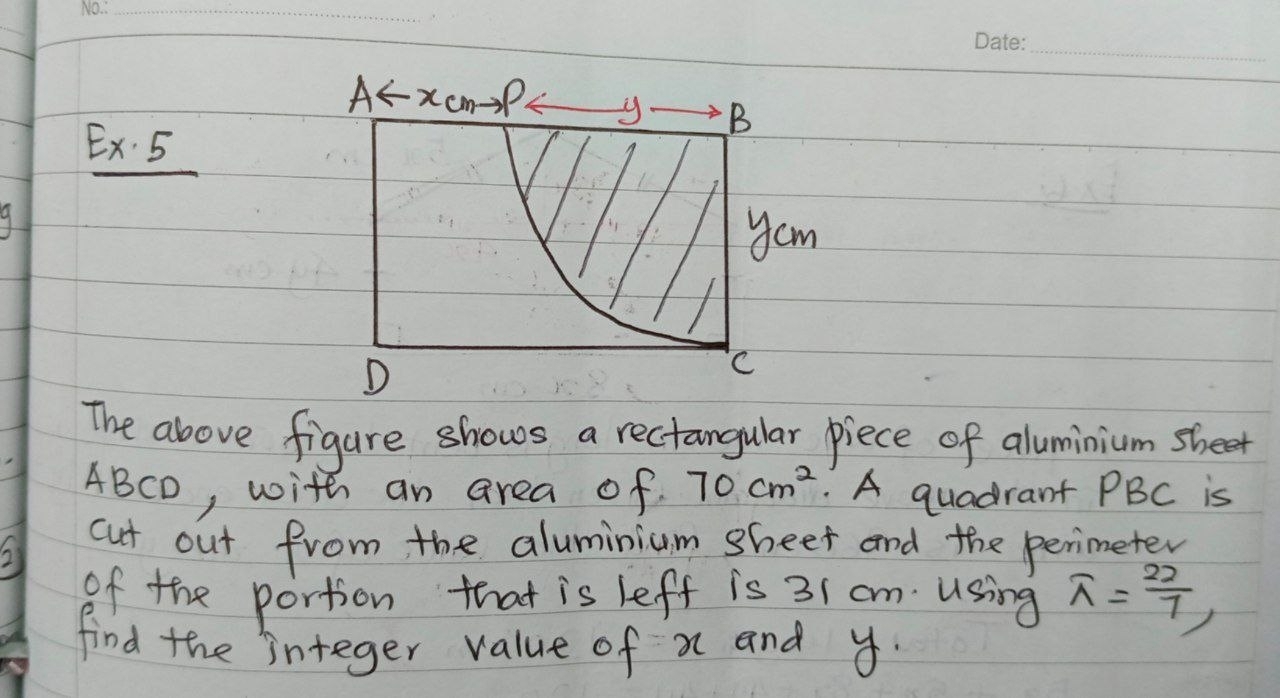 No.:
Date:
A ← x cm → P ← y → B
Ex. 5
y cm
D
C
The above figure shows a rectangular piece of aluminium sheet
ABCD, with an area of 70 cm². A quadrant PBC is
cut out from the aluminium sheet and the perimeter
of the portion that is left is 31 cm. Using π = 22/7,
find the integer value of x and y.